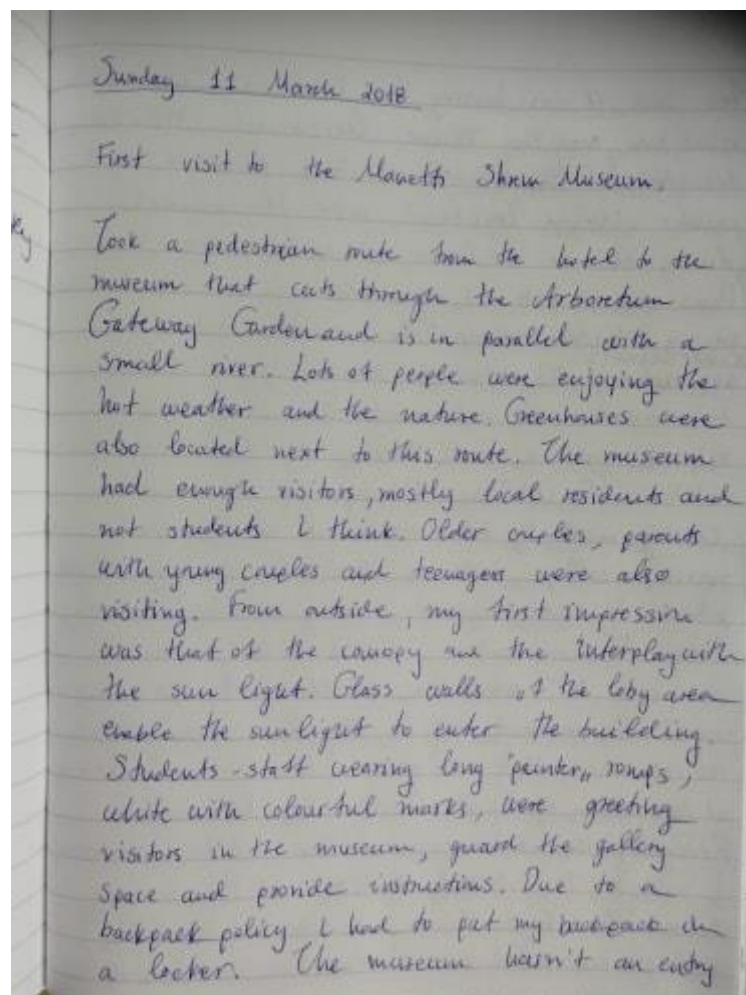 Sunday 11 March 2018
First visit to the Manetti Shrem Museum.
Took a pedestrian route from the hotel to the
museum that cuts through the Arboretum
Gateway Garden and is in parallel with a
small river. Lots of people were enjoying the
hot weather and the nature. Greenhouses were
also located next to this route. The museum
had enough visitors, mostly local residents and
not students I think. Older couples, parents
with young couples and teenagers were also
visiting. From outside, my first impression
was that of the canopy and the interplay with
the sun light. Glass walls of the loby area
enable the sunlight to enter the building.
Students-staff wearing long "painter„
white with colourful marks, were greeting
visitors in the museum, guard the gallery
space and provide instructions. Due to a
backpack policy I had to put my backpack in
a locker. The museum hasn't an entry